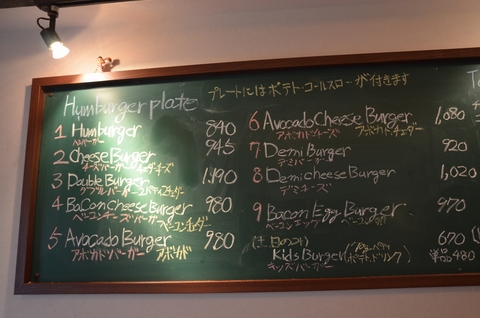 Humburger plate
プレートにはポテト・コールスローが付きます
1 Humburger 840
ハンバーガー
2 Cheese Burger 945
チーズバーガー チェダーチーズ
3 Double Burger 1,190
ダブルバーガー
4 BaCon Cheese Burger 980
ベーコンチーズバーガー ベーコンチェダー
5 Avocado Burger 980
アボカドバーガー アボカド
6 Avocado Cheese Burger 1,080
アボカドチーズ アボカド・チェダー
7 Demi Burger 920
デミバーガー
8 Demi cheese Burger 1,020
デミチーズ
9 Bacon Egg Burger 970
ベーコンエッグ
(土日のみ)
Kids Burger 670
キッズバーガー ポテト、ドリンク 単品 480